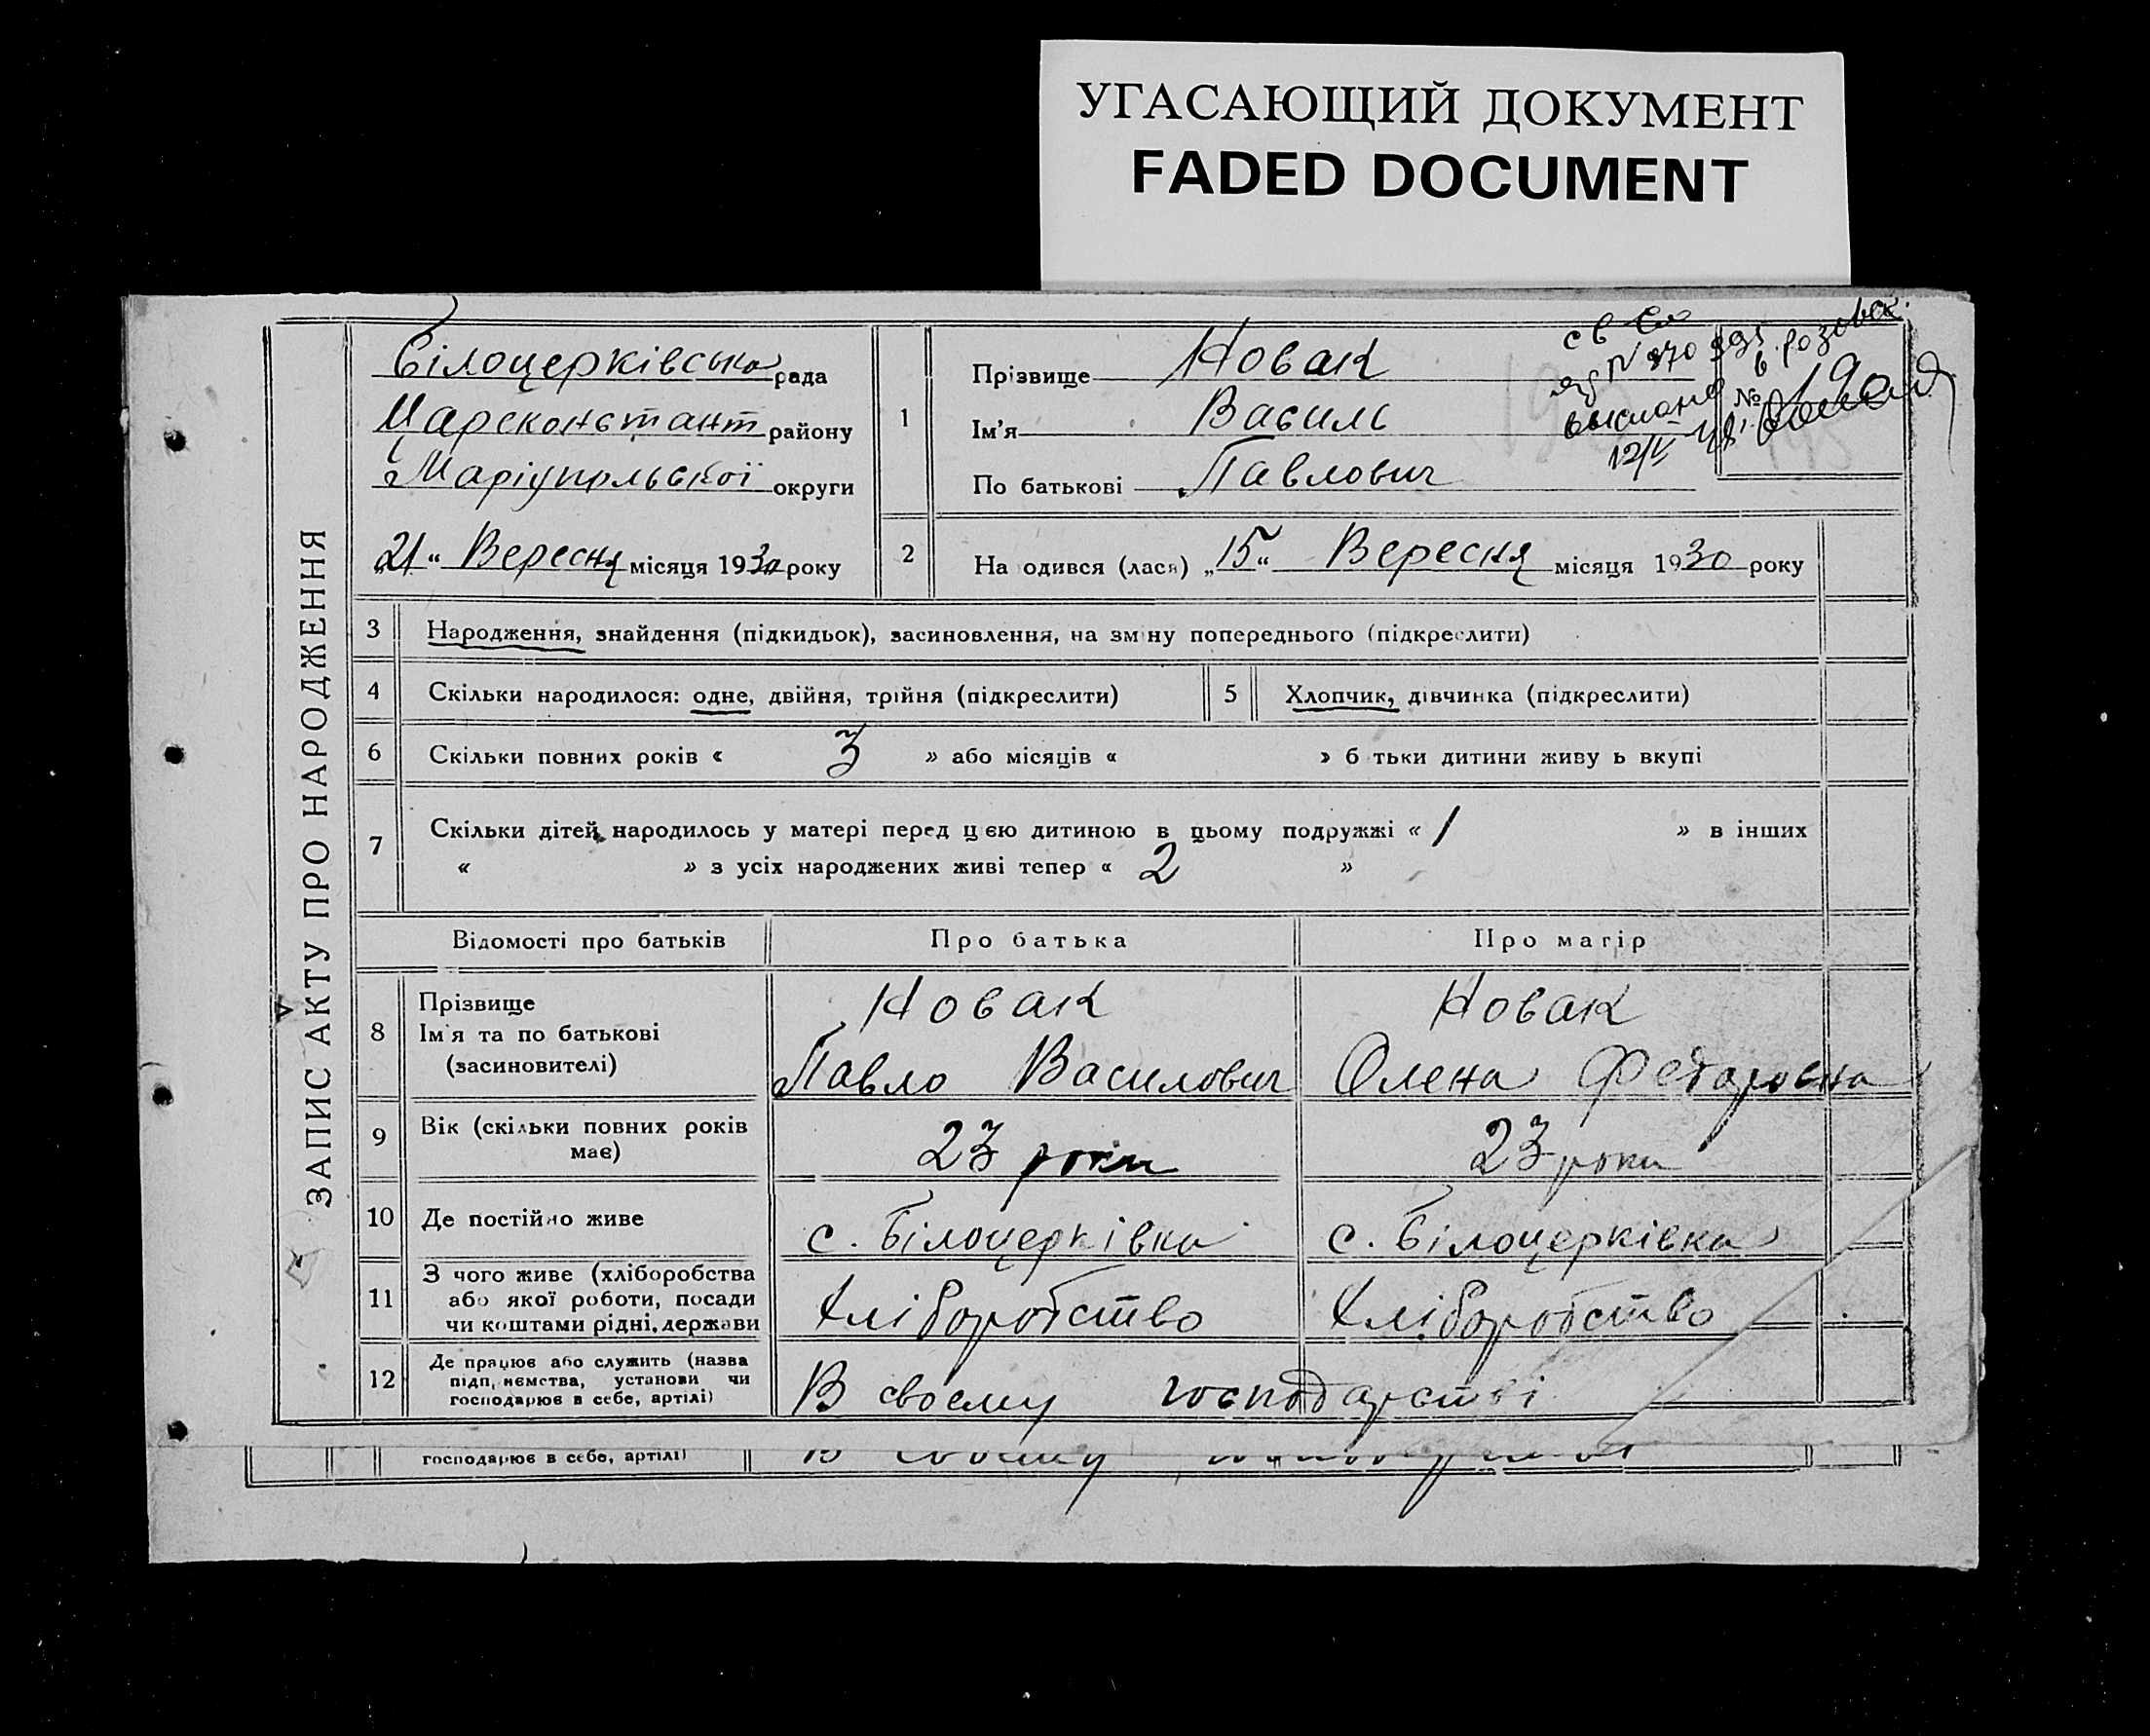 УГАСАЮЩИЙ ДОКУМЕНТ
FADED DOCUMENT
ЗАПИС АКТУ ПРО НАРОДЖЕННЯ
Білоцерківська рада
Царсконстант району
Маріупольської округи
„21“ Вересня місяця 1930 року
1
Прізвище Новак
Ім'я Василь
По батькові Павлович
№
выслано
2
На одився (лася) „15“ Вересня місяця 1930 року
3 Народження, знайдення (підкидьок), засиновлення, на зм ну попереднього (підкреслити)
4 Скільки народилося: одне, двійня, трійня (підкреслити)
5 Хлопчик, дівчинка (підкреслити)
6 Скільки повних років « 3 » або місяців « » б тьки дитини живу ь вкупі
7 Скільки дітей народилось у матері перед цією дитиною в цьому подружжі « 1 » в інших
« » з усіх народжених живі тепер « 2 »
Відомості про батьків Про батька Про матір
8 Прізвище Новак Новак
Ім'я та по батькові
(засиновителі) Павло Василович Олена Федаровна
9 Вік (скільки повних років
має) 23 роки 23 роки
10 Де постійно живе с. Білоцерківка с. Білоцерківка
11 З чого живе (хліборобства
або якої роботи, посади
чи коштами рідні, держави Хліборобство Хліборобство
12 Де працює або служить (назва
підп, ємства, установи чи
господарює в себе, артілі) В своєму господарстві
господарює в себе, артілі)